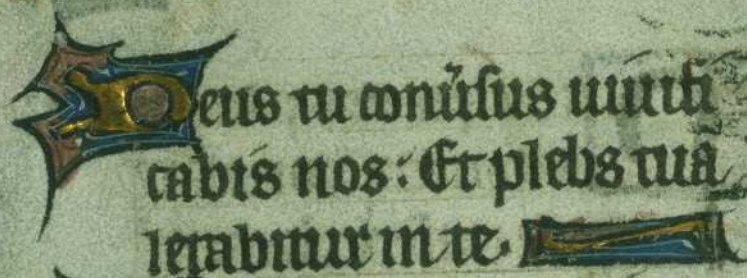 Deus tu conũsus uiuifi
cabis nos: Et plebs tua
letabitur in te.